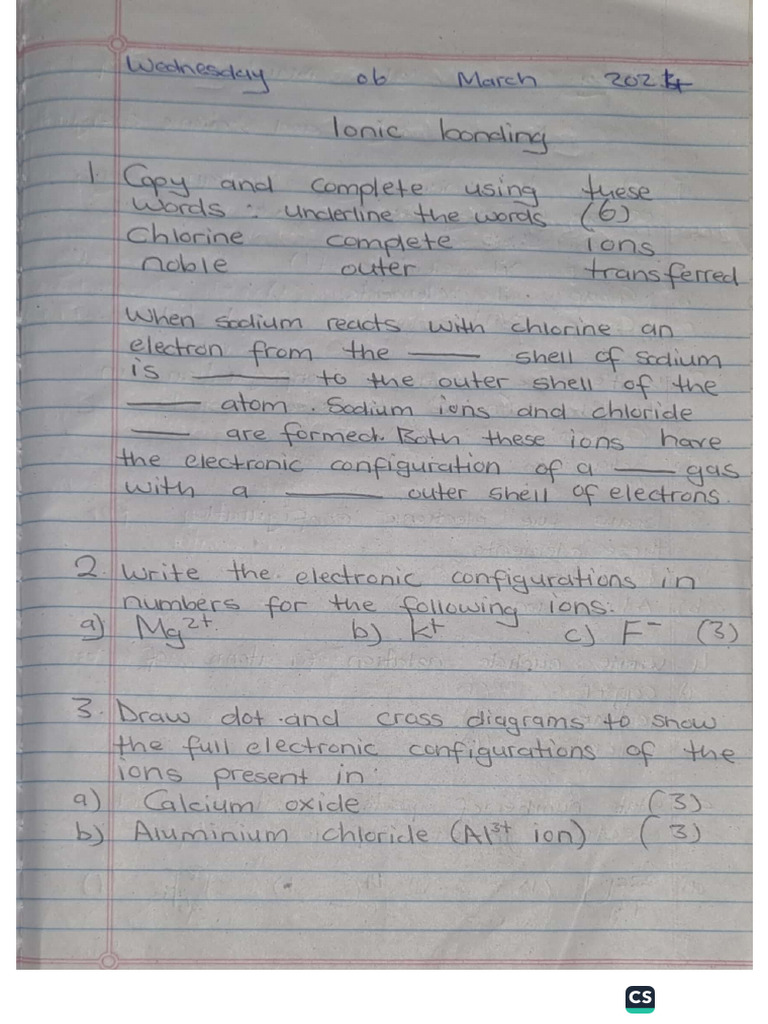 Wednesday 06 March 2024
Ionic bonding
1. Copy and complete using these
words: underline the words (6)
Chlorine complete ions
noble outer transferred
When sodium reacts with chlorine an
electron from the ____ shell of sodium
is ____ to the outer shell of the
____ atom. Sodium ions and chloride
____ are formed. Both these ions have
the electronic configuration of a ____ gas
with a ____ outer shell of electrons.
2. Write the electronic configurations in
numbers for the following ions.
a) Mg²⁺ b) K⁺ c) F⁻ (3)
3. Draw dot and cross diagrams to show
the full electronic configurations of the
ions present in
a) Calcium oxide (3)
b) Aluminium chloride (Al³⁺ ion) (3)
CS